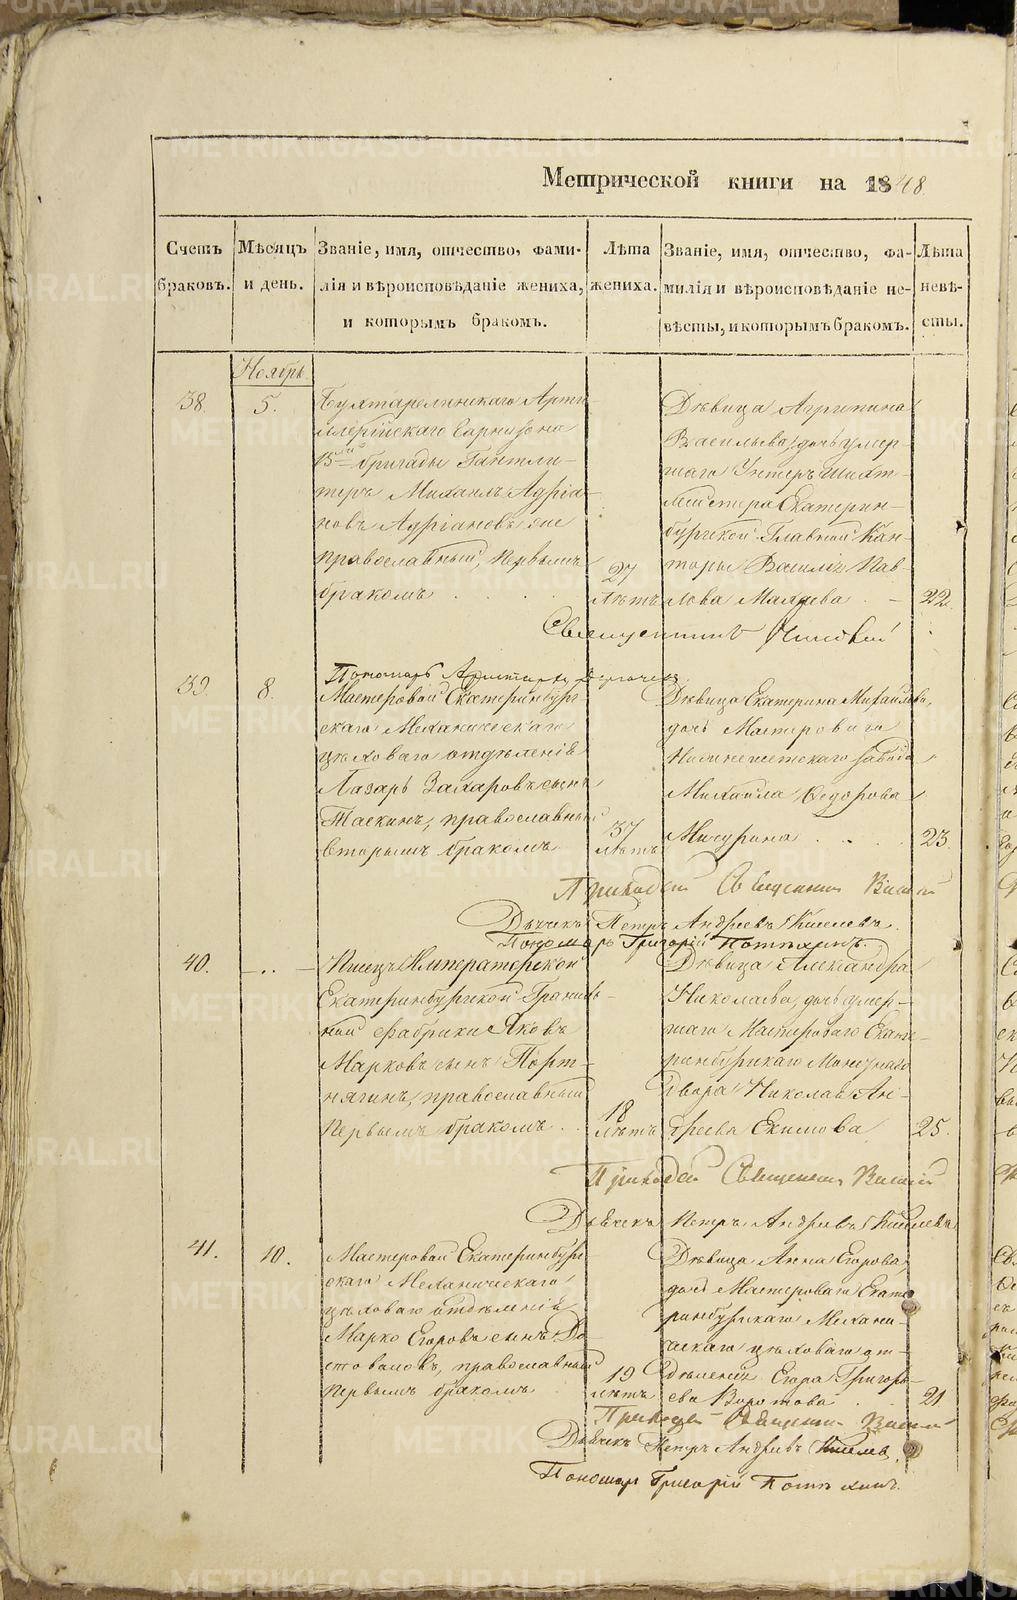 Метрической книги на 1848
Счетъ браковъ.
Мѣсяцъ и день.
Званіе, имя, отчество, фами-
лія и вѣроисповѣданіе жениха,
и которымъ бракомъ.
Лѣта жениха.
Званіе, имя, отчество, фа-
милія и вѣроисповѣданіе не-
вѣсты, и которымъ бракомъ.
Лѣта невѣ-
сты.
Ноябрь
38.
5.
Артил-
лерійскаго Гарнизона
15й бригады
Михаилъ Адріа-
новъ Адріановъ
православный, первымъ
бракомъ
27
лѣтъ
Дѣвица Агрипина
Васильева, дочь умер-
шаго Унтеръ Шихт-
мейстера Екатерин-
бургской Главной Кан-
торы Василія Пав-
лова
22.
Священникъ
Пономарь
39.
8.
Мастеровой Екатеринбург-
скаго Механическаго
цѣховаго отдѣленія
Лазарь Захаровъ сынъ
Таскинъ, православный
вторымъ бракомъ
37
лѣтъ
Дѣвица Екатерина Михайлова,
дочь Мастероваго
Нижнеисетскаго завода
Михаила Ѳедорова
Мичурина
23.
Приход Священник
Дьячекъ Петръ Андреевъ Киселевъ.
Пономарь Григорій Потѣхинъ.
40.
Писецъ Императорской
Екатеринбургской Граниль-
ной фабрики Яковъ
Марковъ сынъ Порт-
нягинъ, православный
первымъ бракомъ
18
лѣтъ
Дѣвица Александра
Николаева, дочь умер-
шаго Мастероваго Екате-
ринбургскаго Монетнаго
Двора Николая Ан-
дреева Екимова
25.
Приход Священник
Дьячекъ Петръ Андреевъ Киселевъ
41.
10.
Мастеровой Екатеринбург-
скаго Механическаго
цѣховаго отдѣленія
Марко Егоровъ сынъ До-
стоваловъ, православный
первымъ бракомъ
19
лѣтъ
Дѣвица Анна Егорова,
дочь Мастероваго Екате-
ринбургскаго Механи-
ческаго цѣховаго от-
дѣленія Егора Григорь-
ева
21.
Приход Священник
Дьячекъ Петръ Андреевъ Киселевъ.
Пономарь Григорій Потѣхинъ.
METRIKI.GASO-URAL.RU